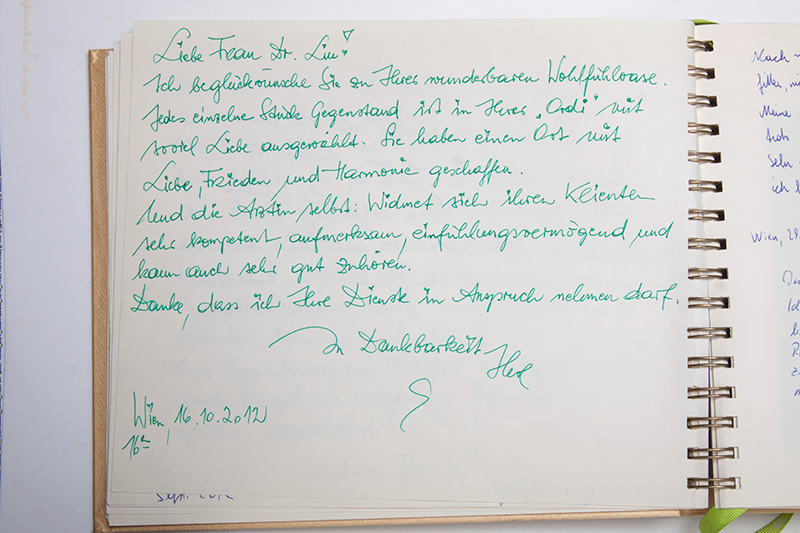 Liebe Frau Dr. Liu!
Ich beglückwünsche Sie zu Ihrer wunderbaren Wohlfühloase.
Jedes einzelne Stück Gegenstand ist in Ihrer „Ordi" mit
soviel Liebe ausgewählt. Sie haben einen Ort mit
Liebe, Frieden und Harmonie geschaffen.
Und die Ärztin selbst: Widmet sich ihren Klienten
sehr kompetent, aufmerksam, einfühlungsvermögend und
kann auch sehr gut zuhören.
Danke, dass ich Ihre Dienste in Anspruch nehmen darf.
In Dankbarkeit
Wien, 16.10.2012
16h
Nach
Meine
hab
Sehr
ich
Wien, 29.